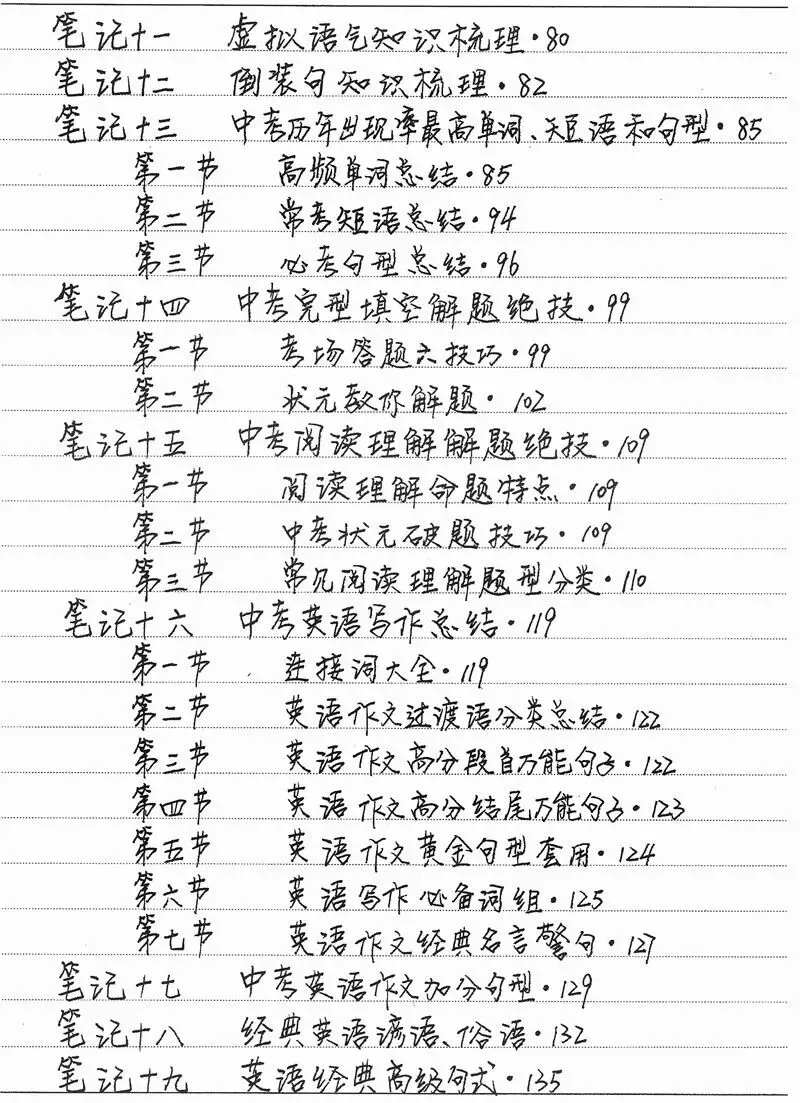 笔记十一 虚拟语气知识梳理·80
笔记十二 倒装句知识梳理·82
笔记十三 中考历年出现率最高单词、短语和句型·85
第一节 高频单词总结·85
第二节 常考短语总结·94
第三节 必考句型总结·96
笔记十四 中考完型填空解题绝技·99
第一节 考场答题六技巧·99
第二节 状元教你解题·102
笔记十五 中考阅读理解解题绝技·109
第一节 阅读理解命题特点·109
第二节 中考状元破题技巧·109
第三节 常见阅读理解题型分类·110
笔记十六 中考英语写作总结·119
第一节 连接词大全·119
第二节 英语作文过渡语分类总结·122
第三节 英语作文高分段首万能句子·122
第四节 英语作文高分结尾万能句子·123
第五节 英语作文黄金句型套用·124
第六节 英语写作必备词组·125
第七节 英语作文经典名言警句·127
笔记十七 中考英语作文加分句型·129
笔记十八 经典英语谚语、俗语·132
笔记十九 英语经典高级句式·135